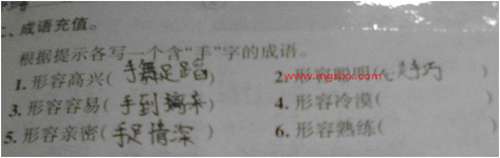 、成语充值。
根据提示各写一个含“手”字的成语。
1.形容高兴(手舞足蹈) 2.形容聪明(心灵手巧)
www.
3.形容容易(手到擒来) 4.形容冷漠( )
5.形容亲密(手足情深) 6.形容熟练( )